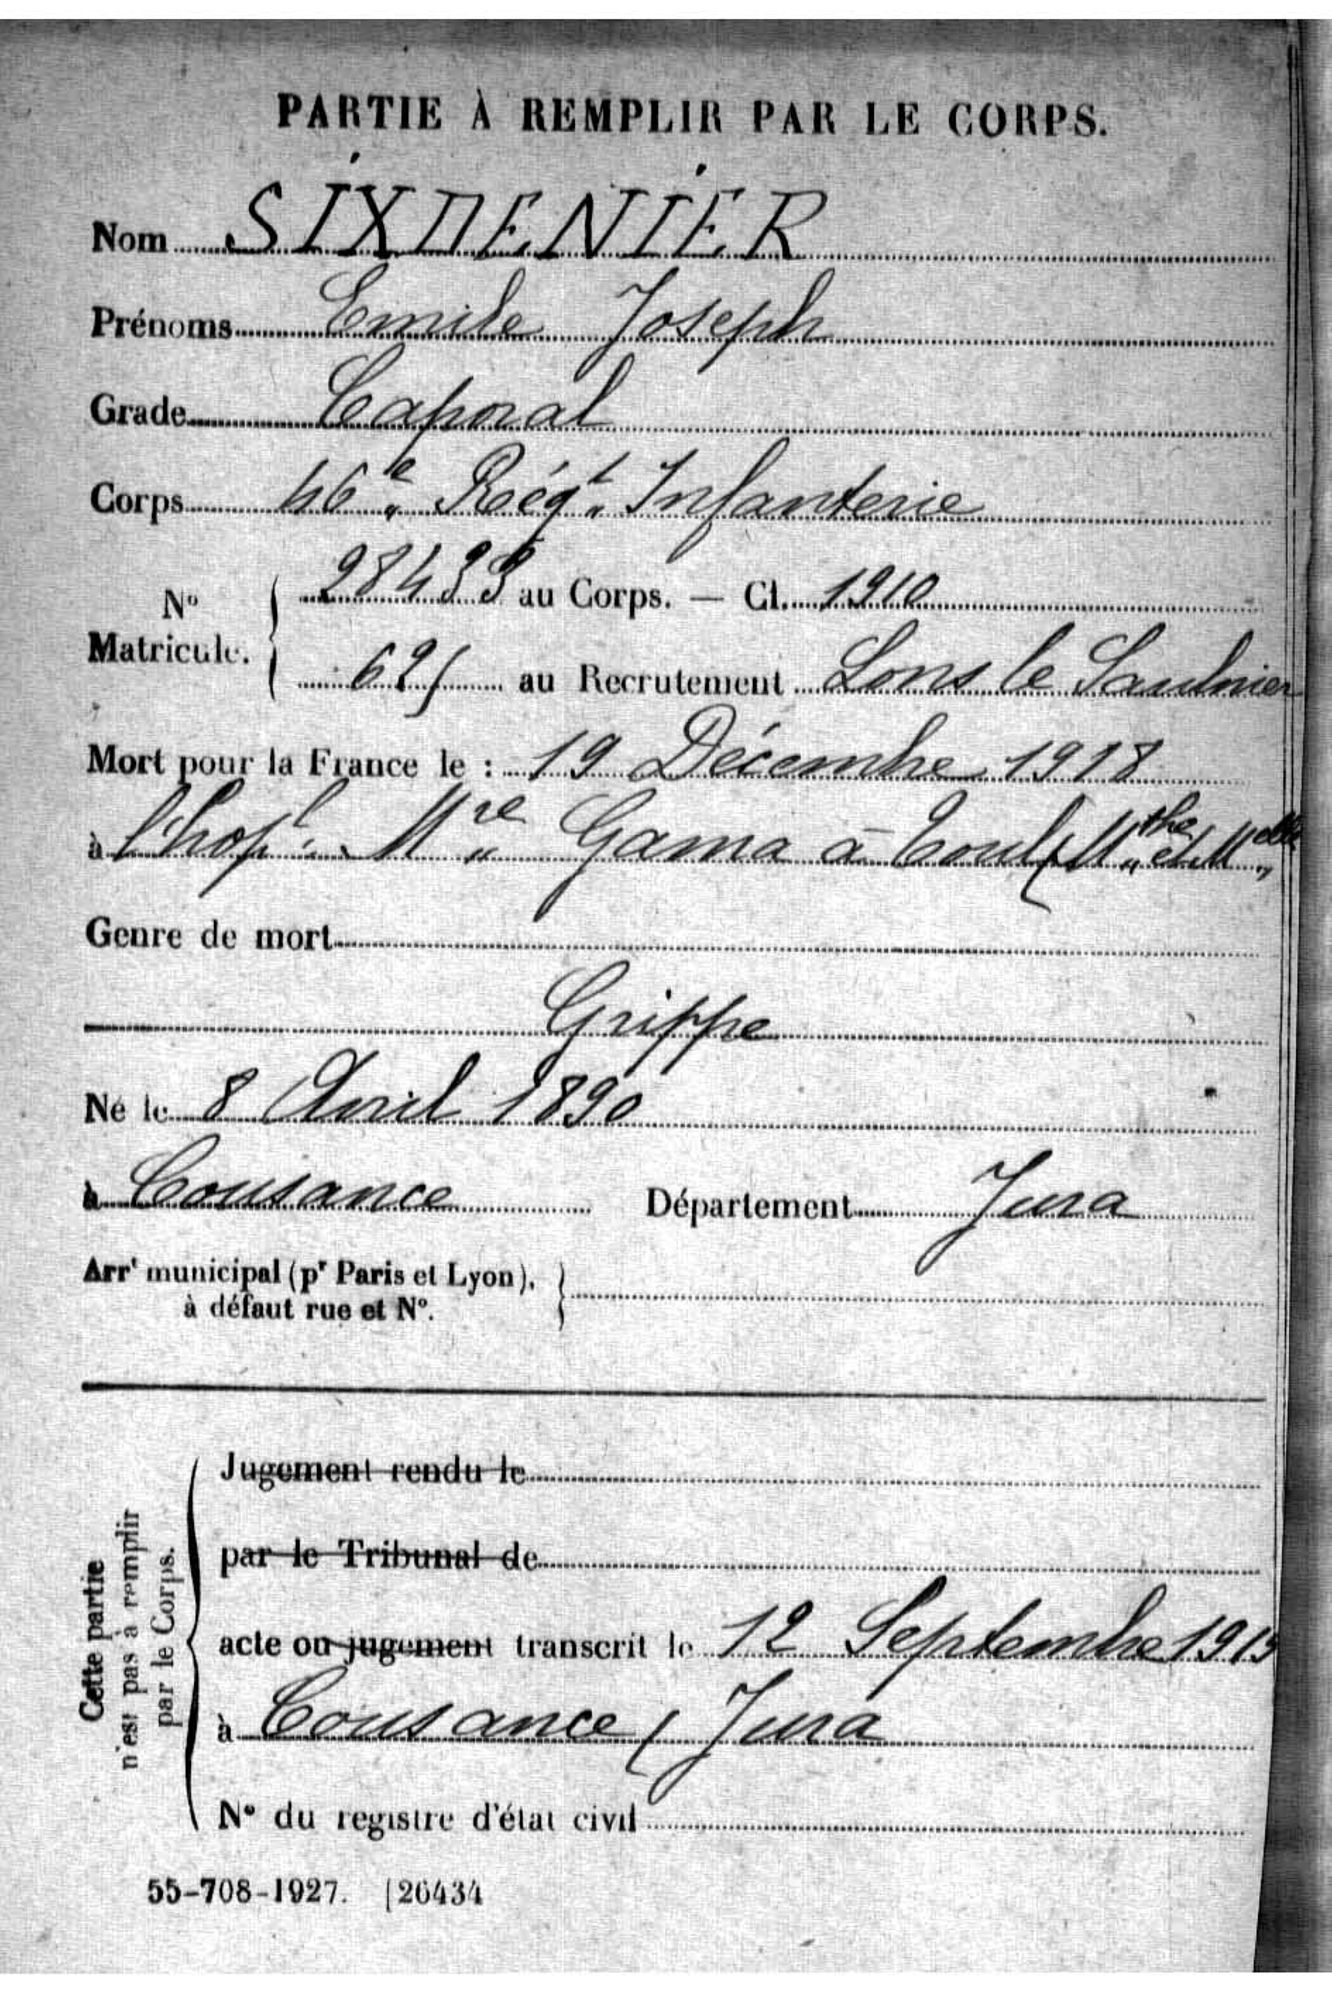 PARTIE À REMPLIR PAR LE CORPS.
Nom SIXDENIER
Prénoms Emile Joseph
Grade Caporal
Corps 46e Régt Infanterie
No Matricule. 28433 au Corps. — Cl. 1910
625 au Recrutement Lons le Saulnier
Mort pour la France le : 19 Décembre 1918
à l'hopl. Mre Gama à Toul (Mthe et Melle
Genre de mort
Grippe
Né le 8 Avril 1890
à Cousance Département Jura
Arrt municipal (pr Paris et Lyon),
à défaut rue et No.
Cette partie
n'est pas à remplir
par le Corps.
Jugement rendu le
par le Tribunal de
acte ou jugement transcrit le 12 Septembre 191
à Cousance (Jura
No du registre d'état civil
55-708-1927. [26434